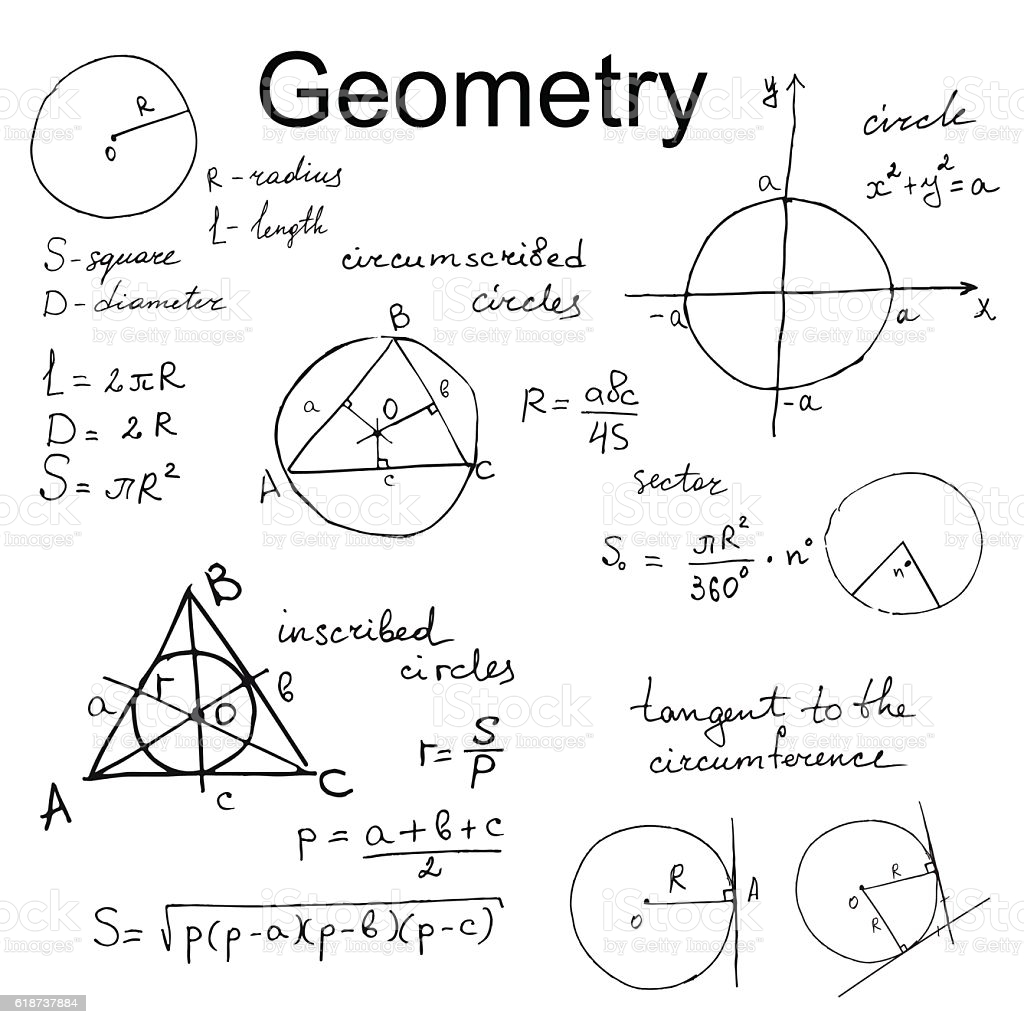 Geometry
R
O
R - radius
L - length
S - square
D - diameter
L = 2πR
D = 2R
S = πR²
circumscribed
circles
B
a
в
O
A
c
C
R = aвc/4S
y
circle
x² + y² = a
a
-a
a
x
-a
sector
S₀ = πR²/360⁰ · n⁰
n⁰
B
inscribed
circles
a
r
в
O
A
c
C
r = S/P
p = a + в + c/2
S = √p(p-a)(p-в)(p-c)
tangent to the
circumference
R
O
A
R
O
R
iStock
by Getty Images™
618737884